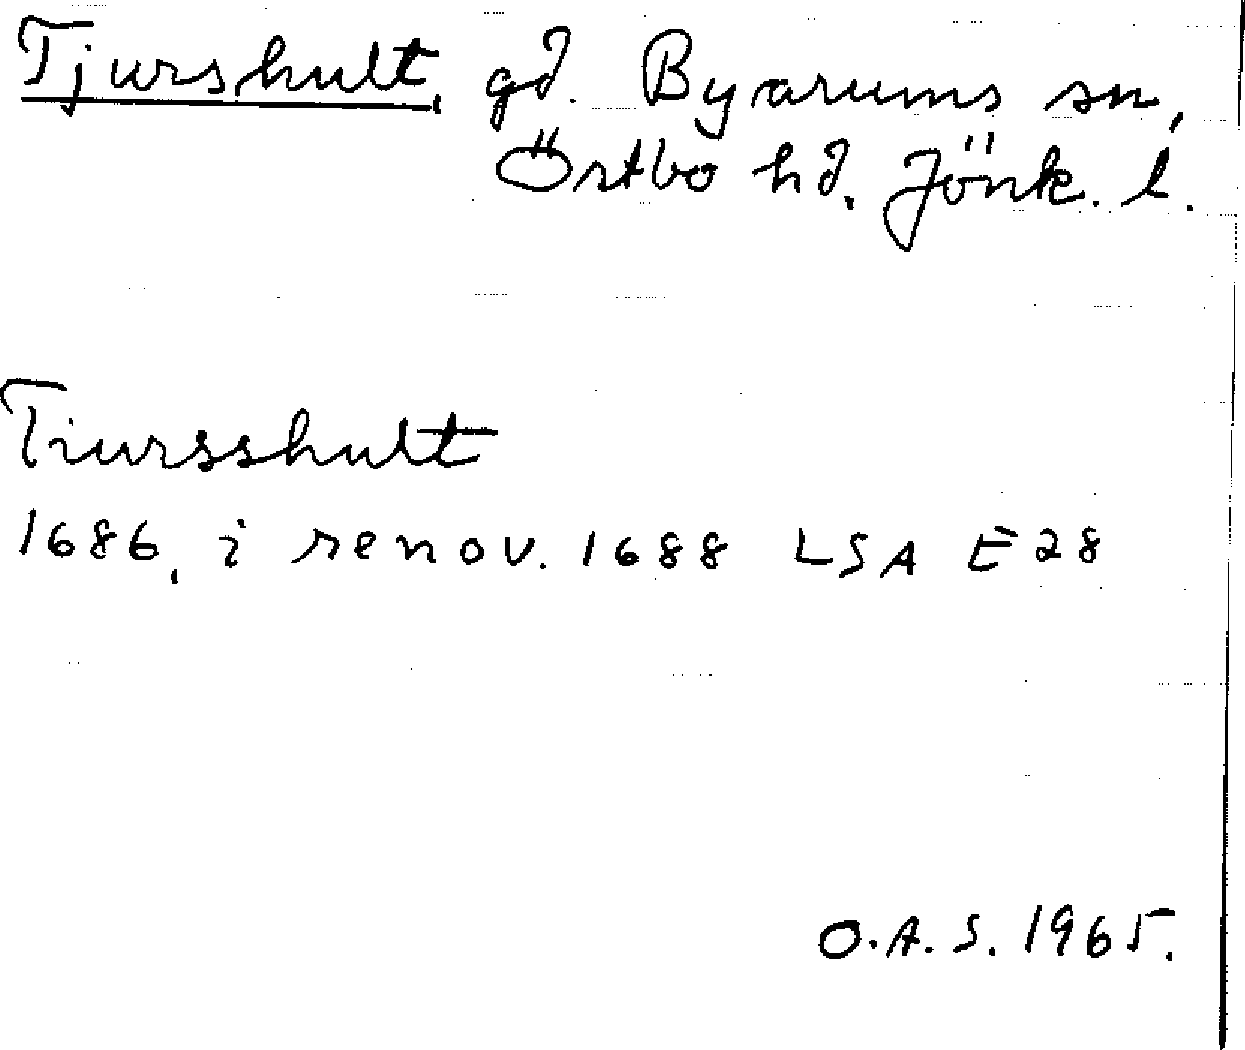 Tjurshult, gd. Byarums sn,
Östbo hd. Jönk. l.
Tiursshult
1686, i renov. 1688 LSA E28
O.A.S. 1965.